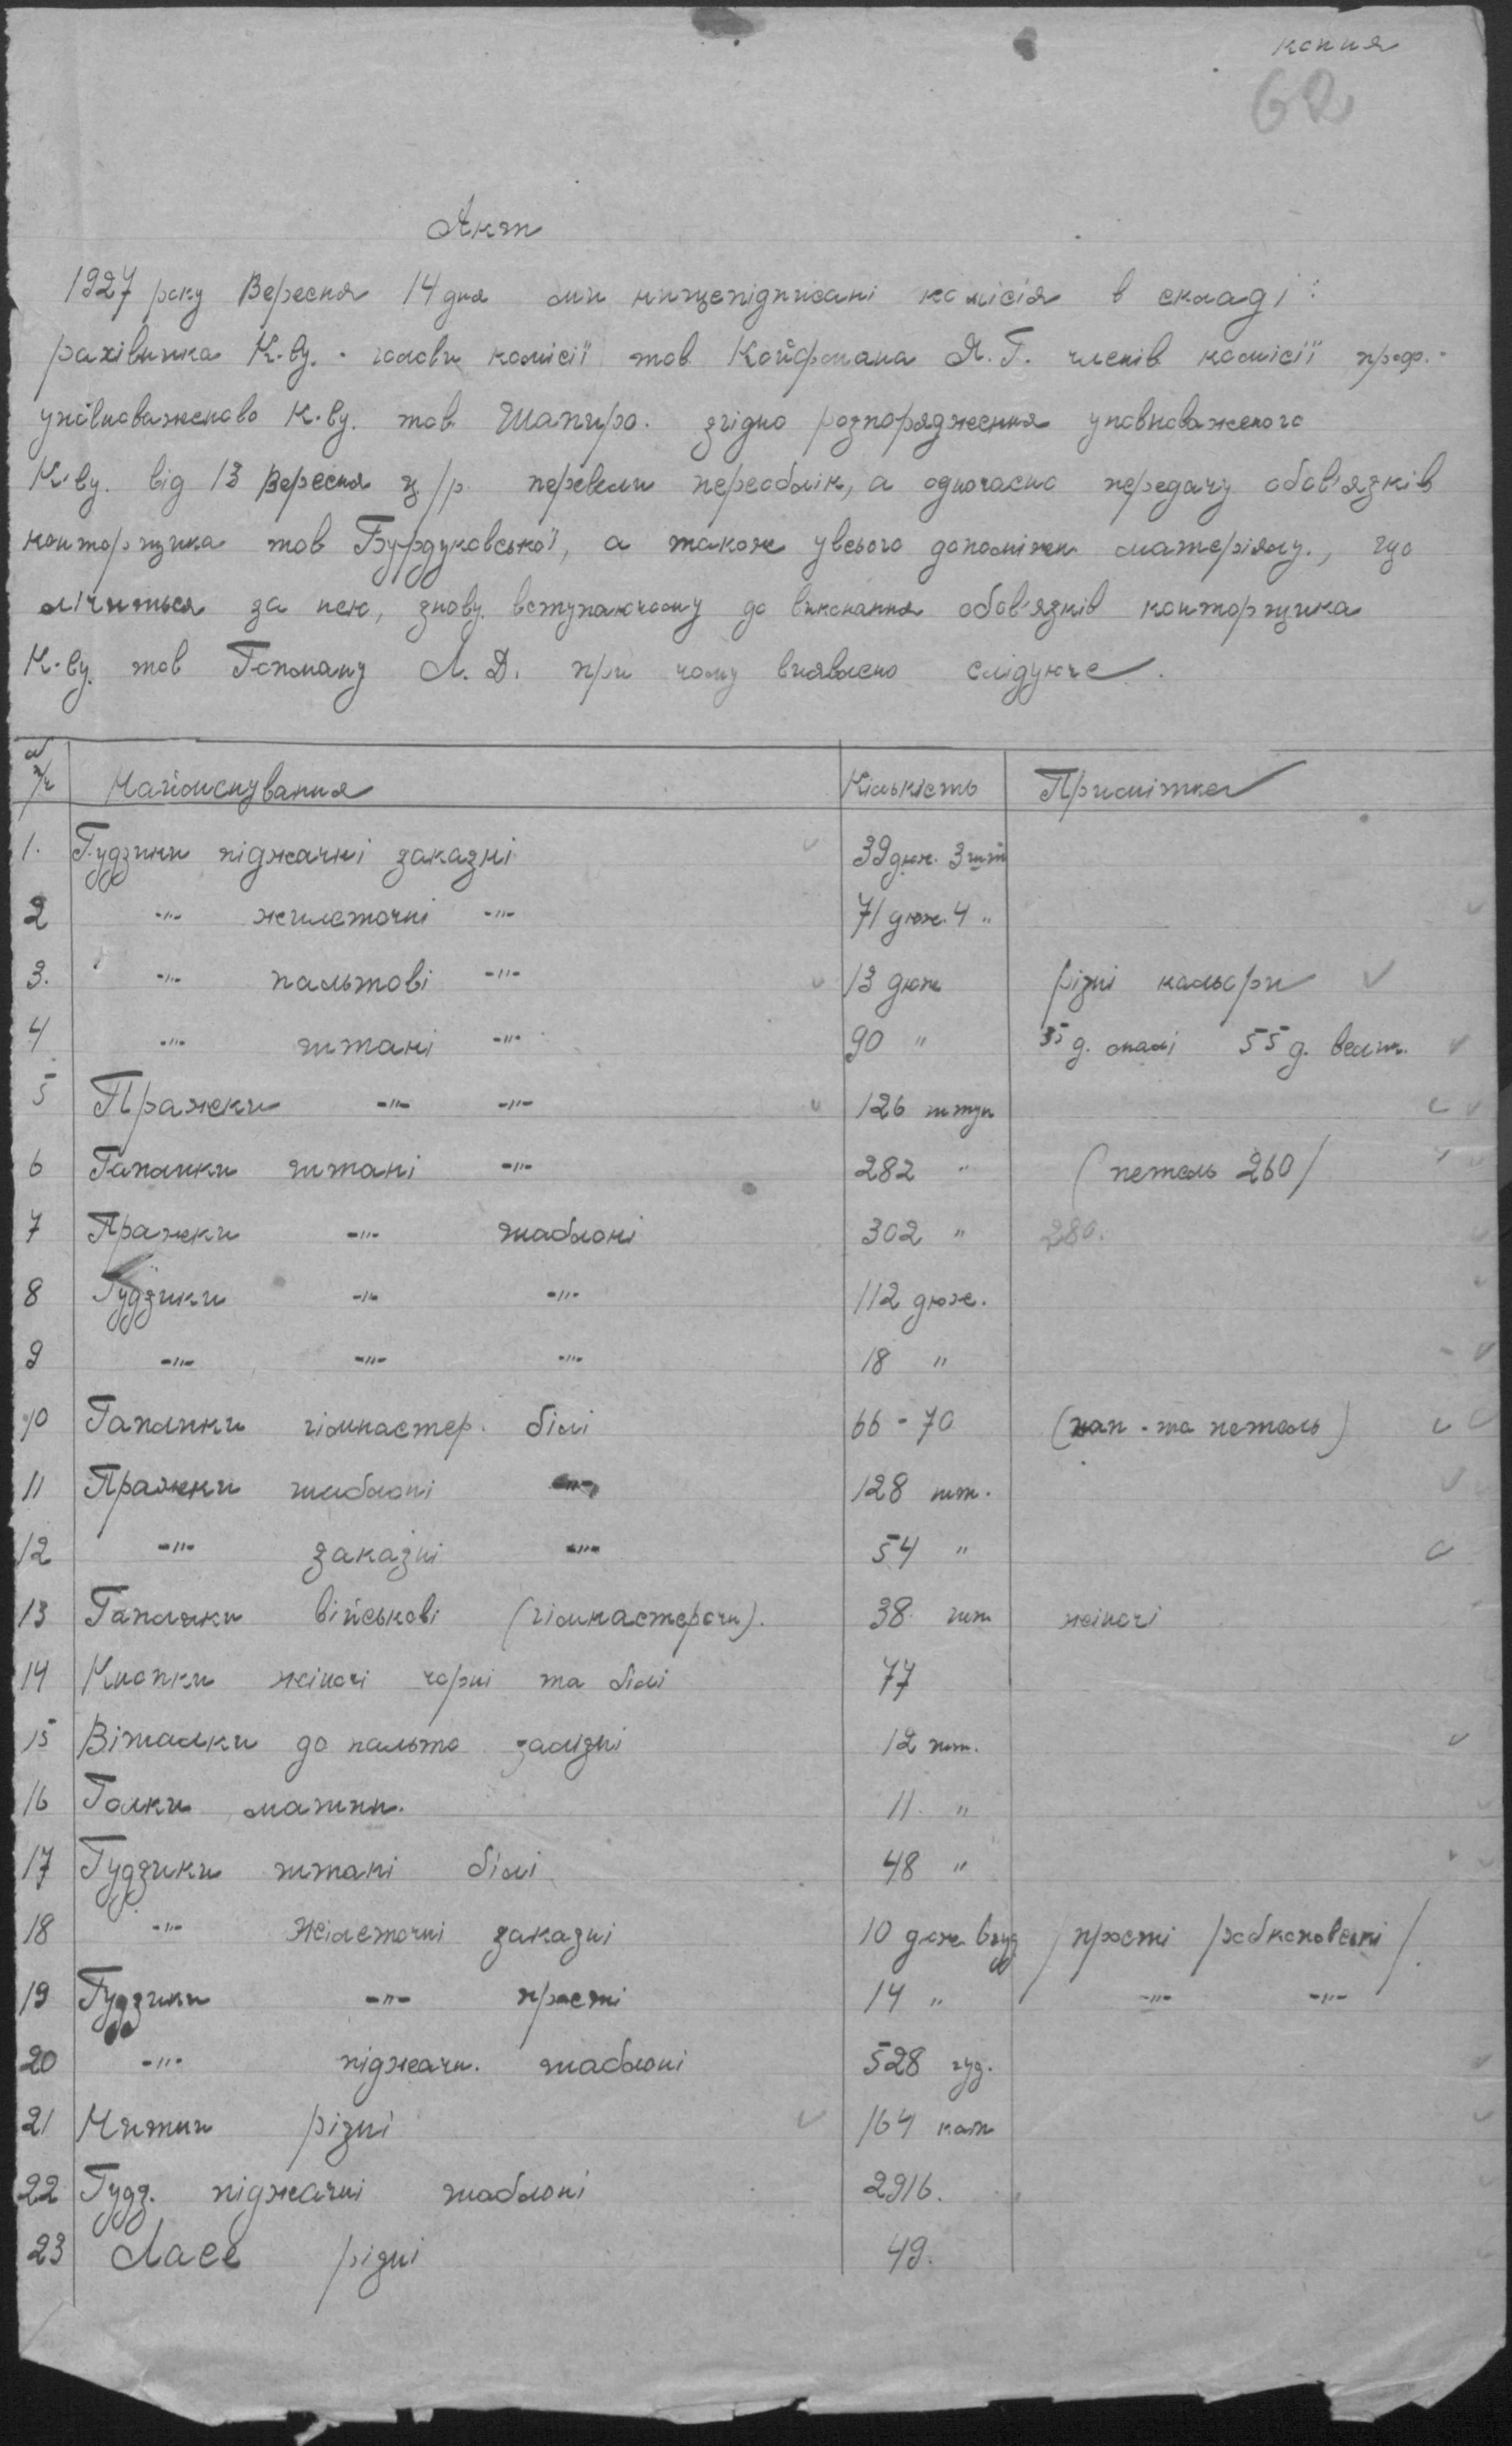 копия
62
Акт
1927 року Вересня 14 дня ми нищепідписані комісія в складі:
рахівника К-ву. - голови комісії тов Койфмана Я. Г. членів комісії проф.-
уповноваженово К-ву. тов. Шапиро. згідно розпорядження уповноваженого
К-ву. від 13 Вересня ц/р. перевели переоблік, а одночасно передачу обов'язків
конторщика тов Бурдуковської, а також увсього допоміжн матеріялу., що
лічиться за нею, знову вступаючому до виконання обов'язків конторщика
К-ву. тов Гопману Л. Д. при чому виявлено слідуюче.
№ п/ч Найменування Кількість Примітка
1. Гудзики піджачні заказні 39 дюж. 3 шт
2 -"- жилеточні -"- 71 дюж. 4 "
3. -"- пальтові -"- 13 дюж різні кольори
4 -"- штані -"- 90 " 35 д. малі 55 д. велик.
5 Пражки -"- -"- 126 штук
6 Гаплики штані -"- 282 " (петель 260)
7 Пражки -"- шаблоні 302 " 280.
8 Гудзики -"- -"- 112 дюж.
9 -"- -"- -"- 18 "
10 Гаплики гімнастер. білі 66 - 70 (гап - та петель)
11 Пражки шаблоні -"- 128 шт.
12 -"- заказні -"- 54 "
13 Гаплики військові (гімнастерочн). 38 шт жіночі
14 Кнопки жіночі чорні та білі 77
15 Вішалки до пальто залізні 12 шт.
16 Голки машин. 11. "
17 Гудзики штані білі 48 "
18 -"- жілеточні заказні 10 дюж 6 гуд /прості робкоповські/.
19 Гудзики -"- прості 14 " -"- -"-
20 -"- піджачн. шаблоні 528 гуд.
21 Нитки різні 164 кат
22 Гудз. піджачні шаблоні 2916.
23 Ласе різні 49.